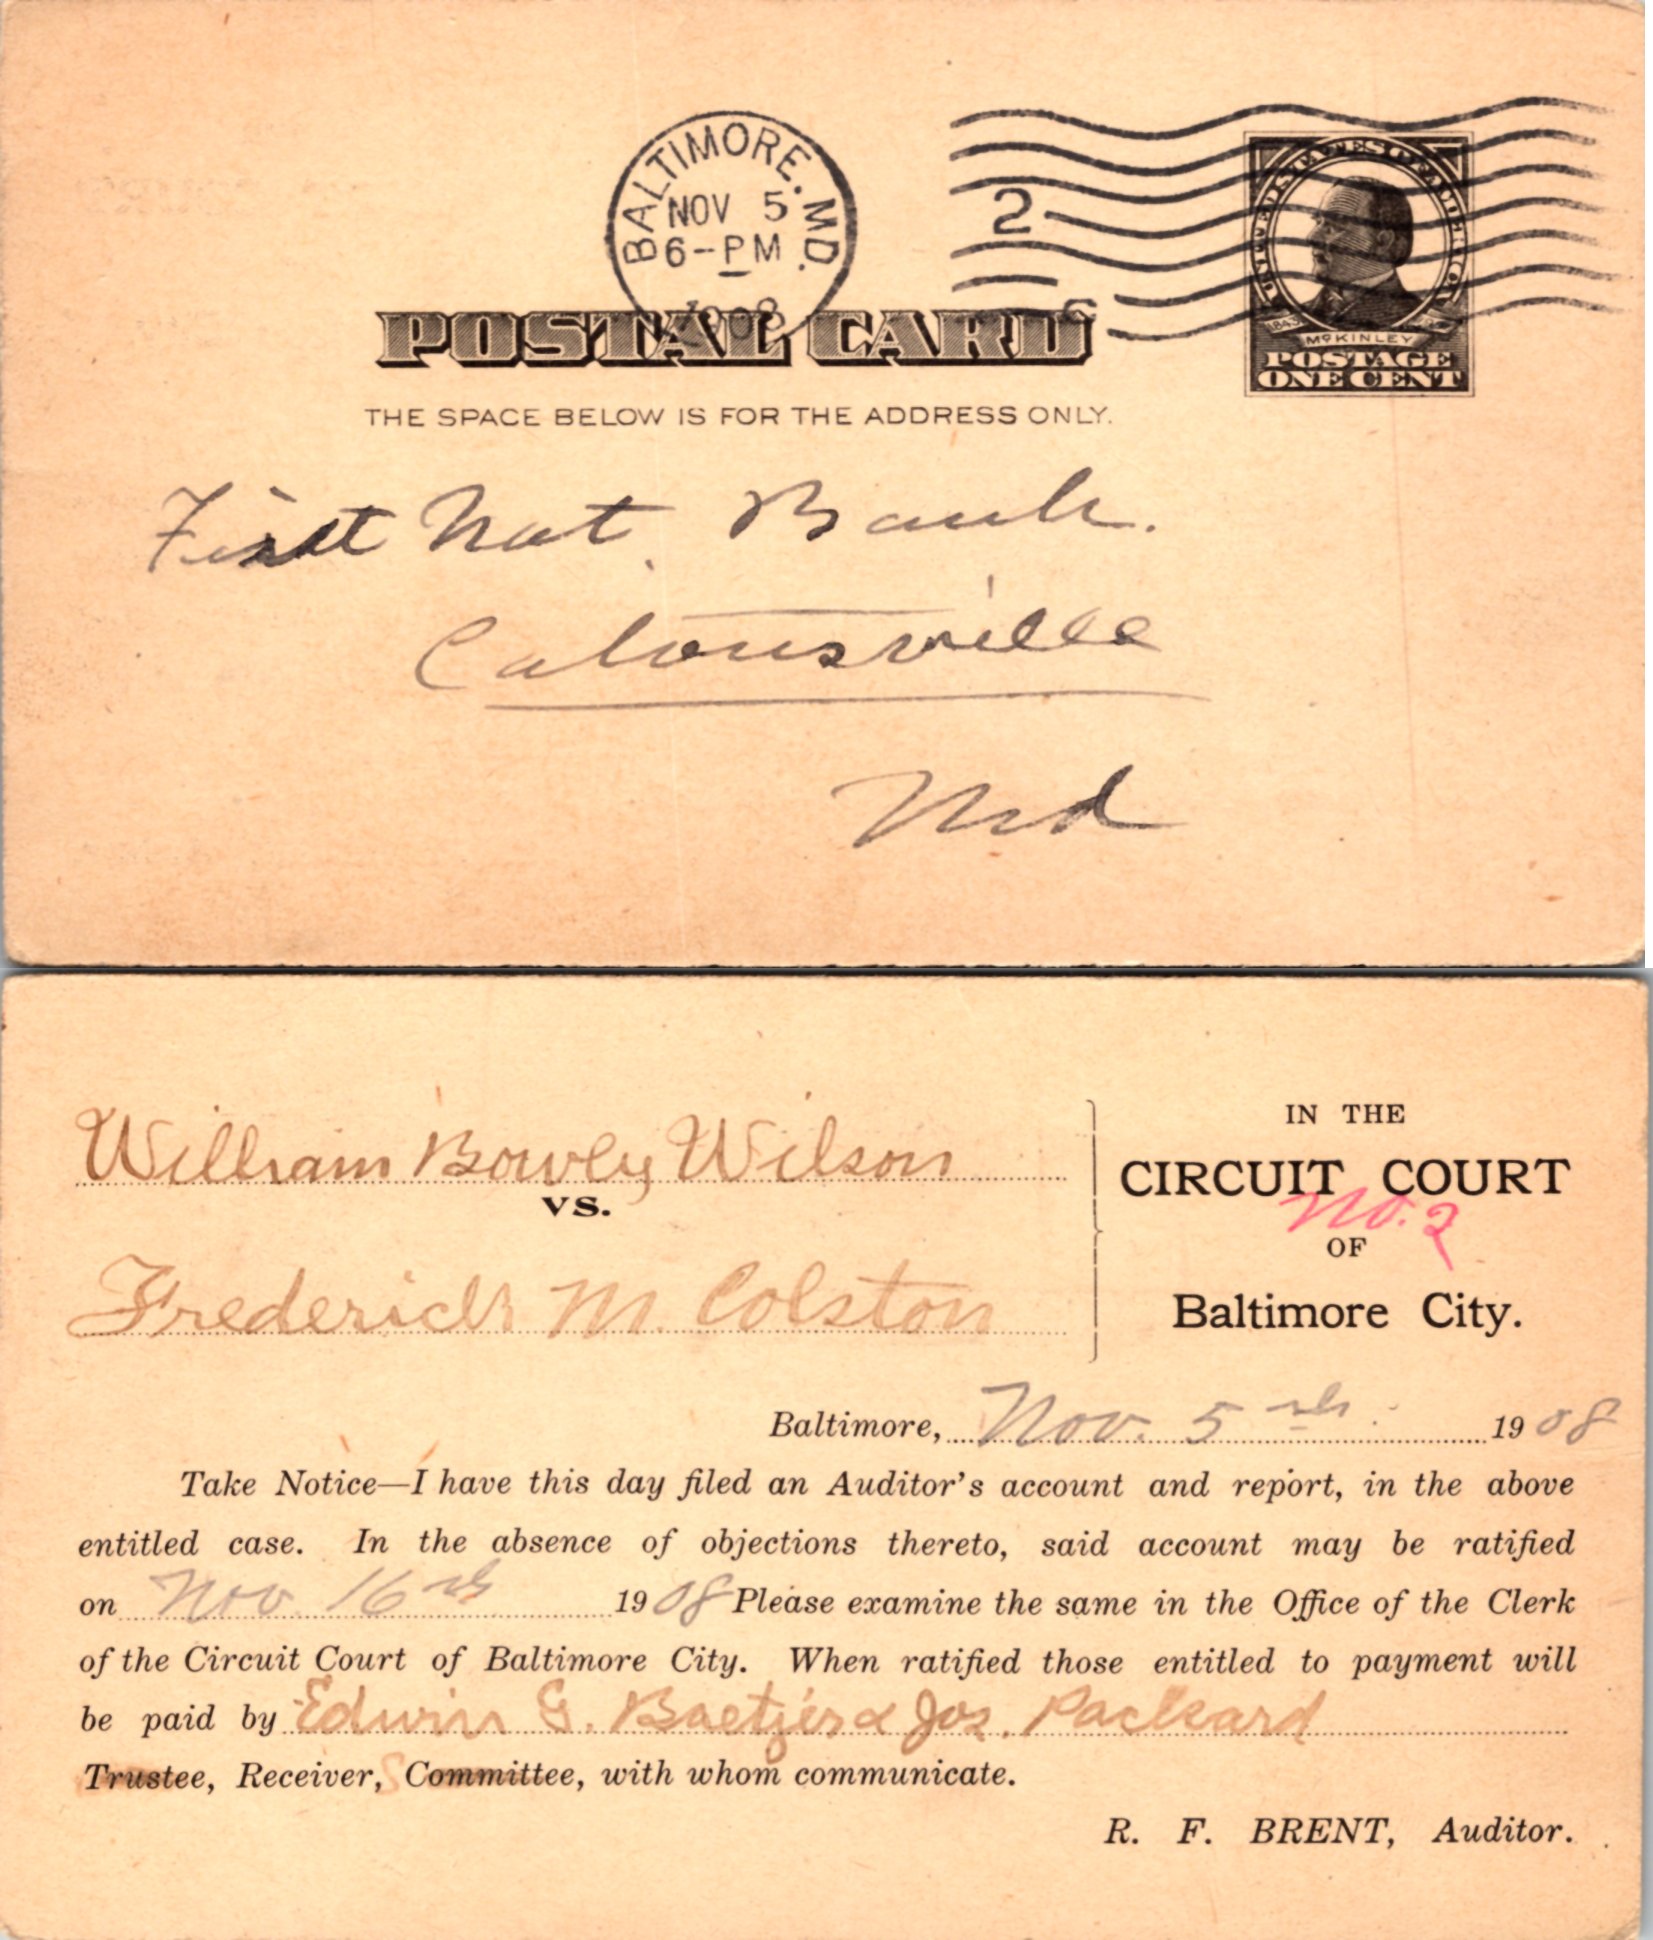 BALTIMORE. MD.
NOV 5
6-PM
1908
2
POSTAL CARD
THE SPACE BELOW IS FOR THE ADDRESS ONLY.
McKINLEY
POSTAGE
ONE CENT
First Nat. Bank.
Catonsville
Md
William Bowly Wilson
VS.
Frederick M. Colston
IN THE
CIRCUIT COURT
No. 2
OF
Baltimore City.
Baltimore, Nov. 5th. 1908
Take Notice—I have this day filed an Auditor's account and report, in the above
entitled case. In the absence of objections thereto, said account may be ratified
on Nov. 16th 1908 Please examine the same in the Office of the Clerk
of the Circuit Court of Baltimore City. When ratified those entitled to payment will
be paid by Edwin G. Baetjer & Jos. Packard
Trustee, Receiver,s Committee, with whom communicate.
R. F. BRENT, Auditor.